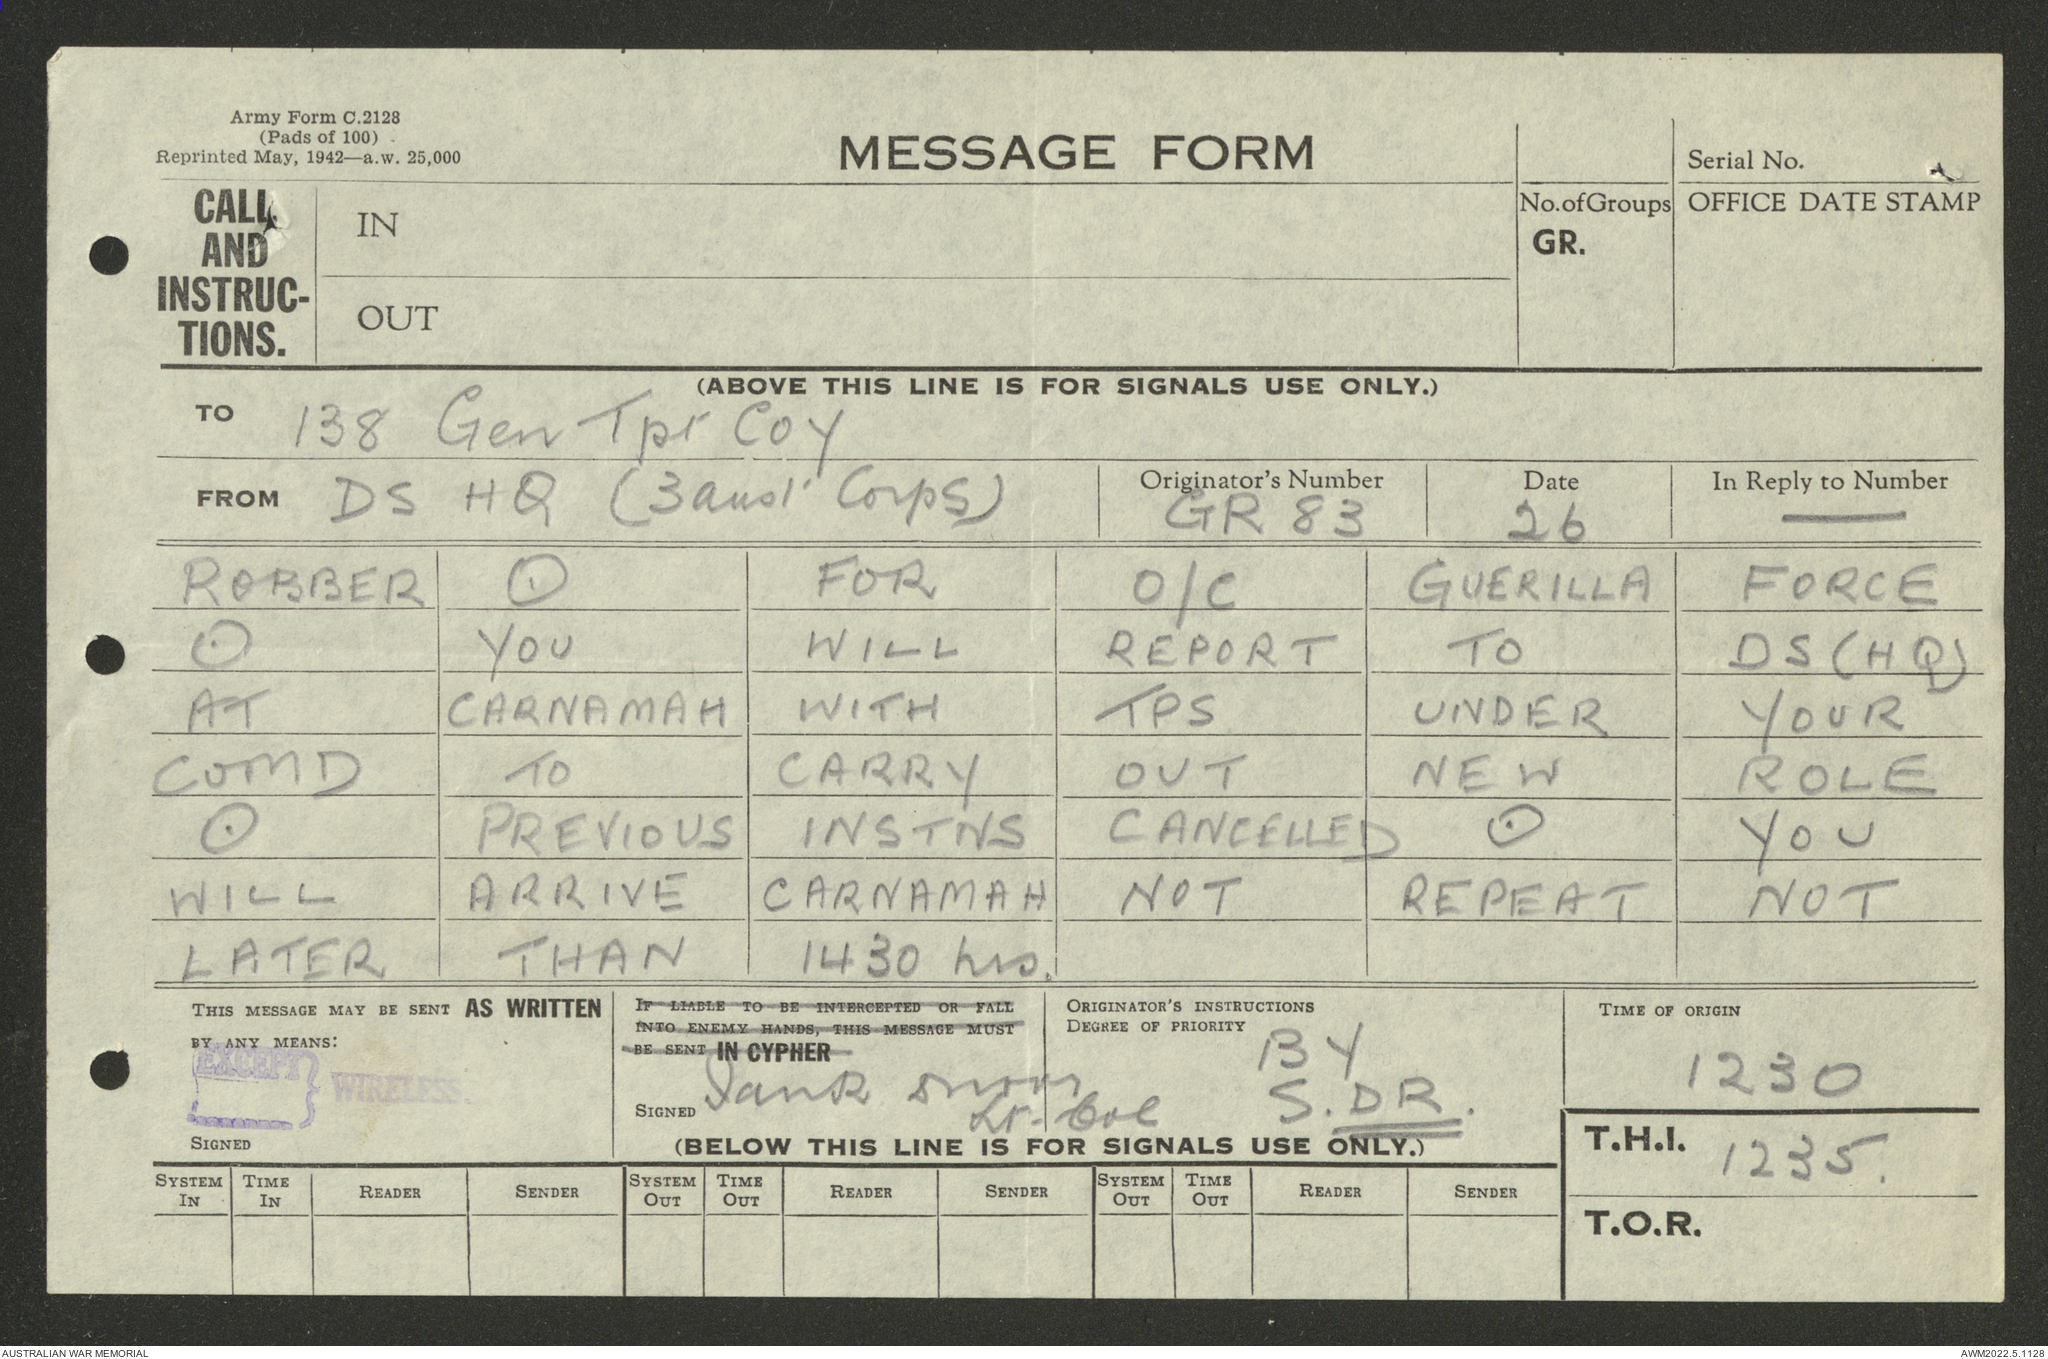 Army Form C.2128
(Pads of 100)
Reprinted May, 1942—a.w. 25,000
MESSAGE FORM
Serial No.
CALL AND INSTRUC-TIONS.
IN
OUT
No. of Groups
GR.
OFFICE DATE STAMP
(ABOVE THIS LINE IS FOR SIGNALS USE ONLY.)
TO 138 Gen Tpt Coy
FROM DS HQ (3 Aust Corps)
Originator's Number GR 83
Date 26
In Reply to Number —
ROBBER ⊙ FOR O/C GUERILLA FORCE
⊙ YOU WILL REPORT TO DS (HQ)
AT CARNAMAH WITH TPS UNDER YOUR
COMD TO CARRY OUT NEW ROLE
⊙ PREVIOUS INSTNS CANCELLED ⊙ YOU
WILL ARRIVE CARNAMAH NOT REPEAT NOT
LATER THAN 1430 hrs.
THIS MESSAGE MAY BE SENT AS WRITTEN
BY ANY MEANS:
EXCEPT WIRELESS.
SIGNED
IF LIABLE TO BE INTERCEPTED OR FALL
INTO ENEMY HANDS, THIS MESSAGE MUST
BE SENT IN CYPHER
SIGNED
Lt-Col
ORIGINATOR'S INSTRUCTIONS
DEGREE OF PRIORITY
BY
S.DR.
TIME OF ORIGIN
1230
T.H.I. 1235.
T.O.R.
(BELOW THIS LINE IS FOR SIGNALS USE ONLY.)
SYSTEM IN TIME IN READER SENDER SYSTEM OUT TIME OUT READER SENDER SYSTEM OUT TIME OUT READER SENDER
AUSTRALIAN WAR MEMORIAL
AWM2022.5.1128